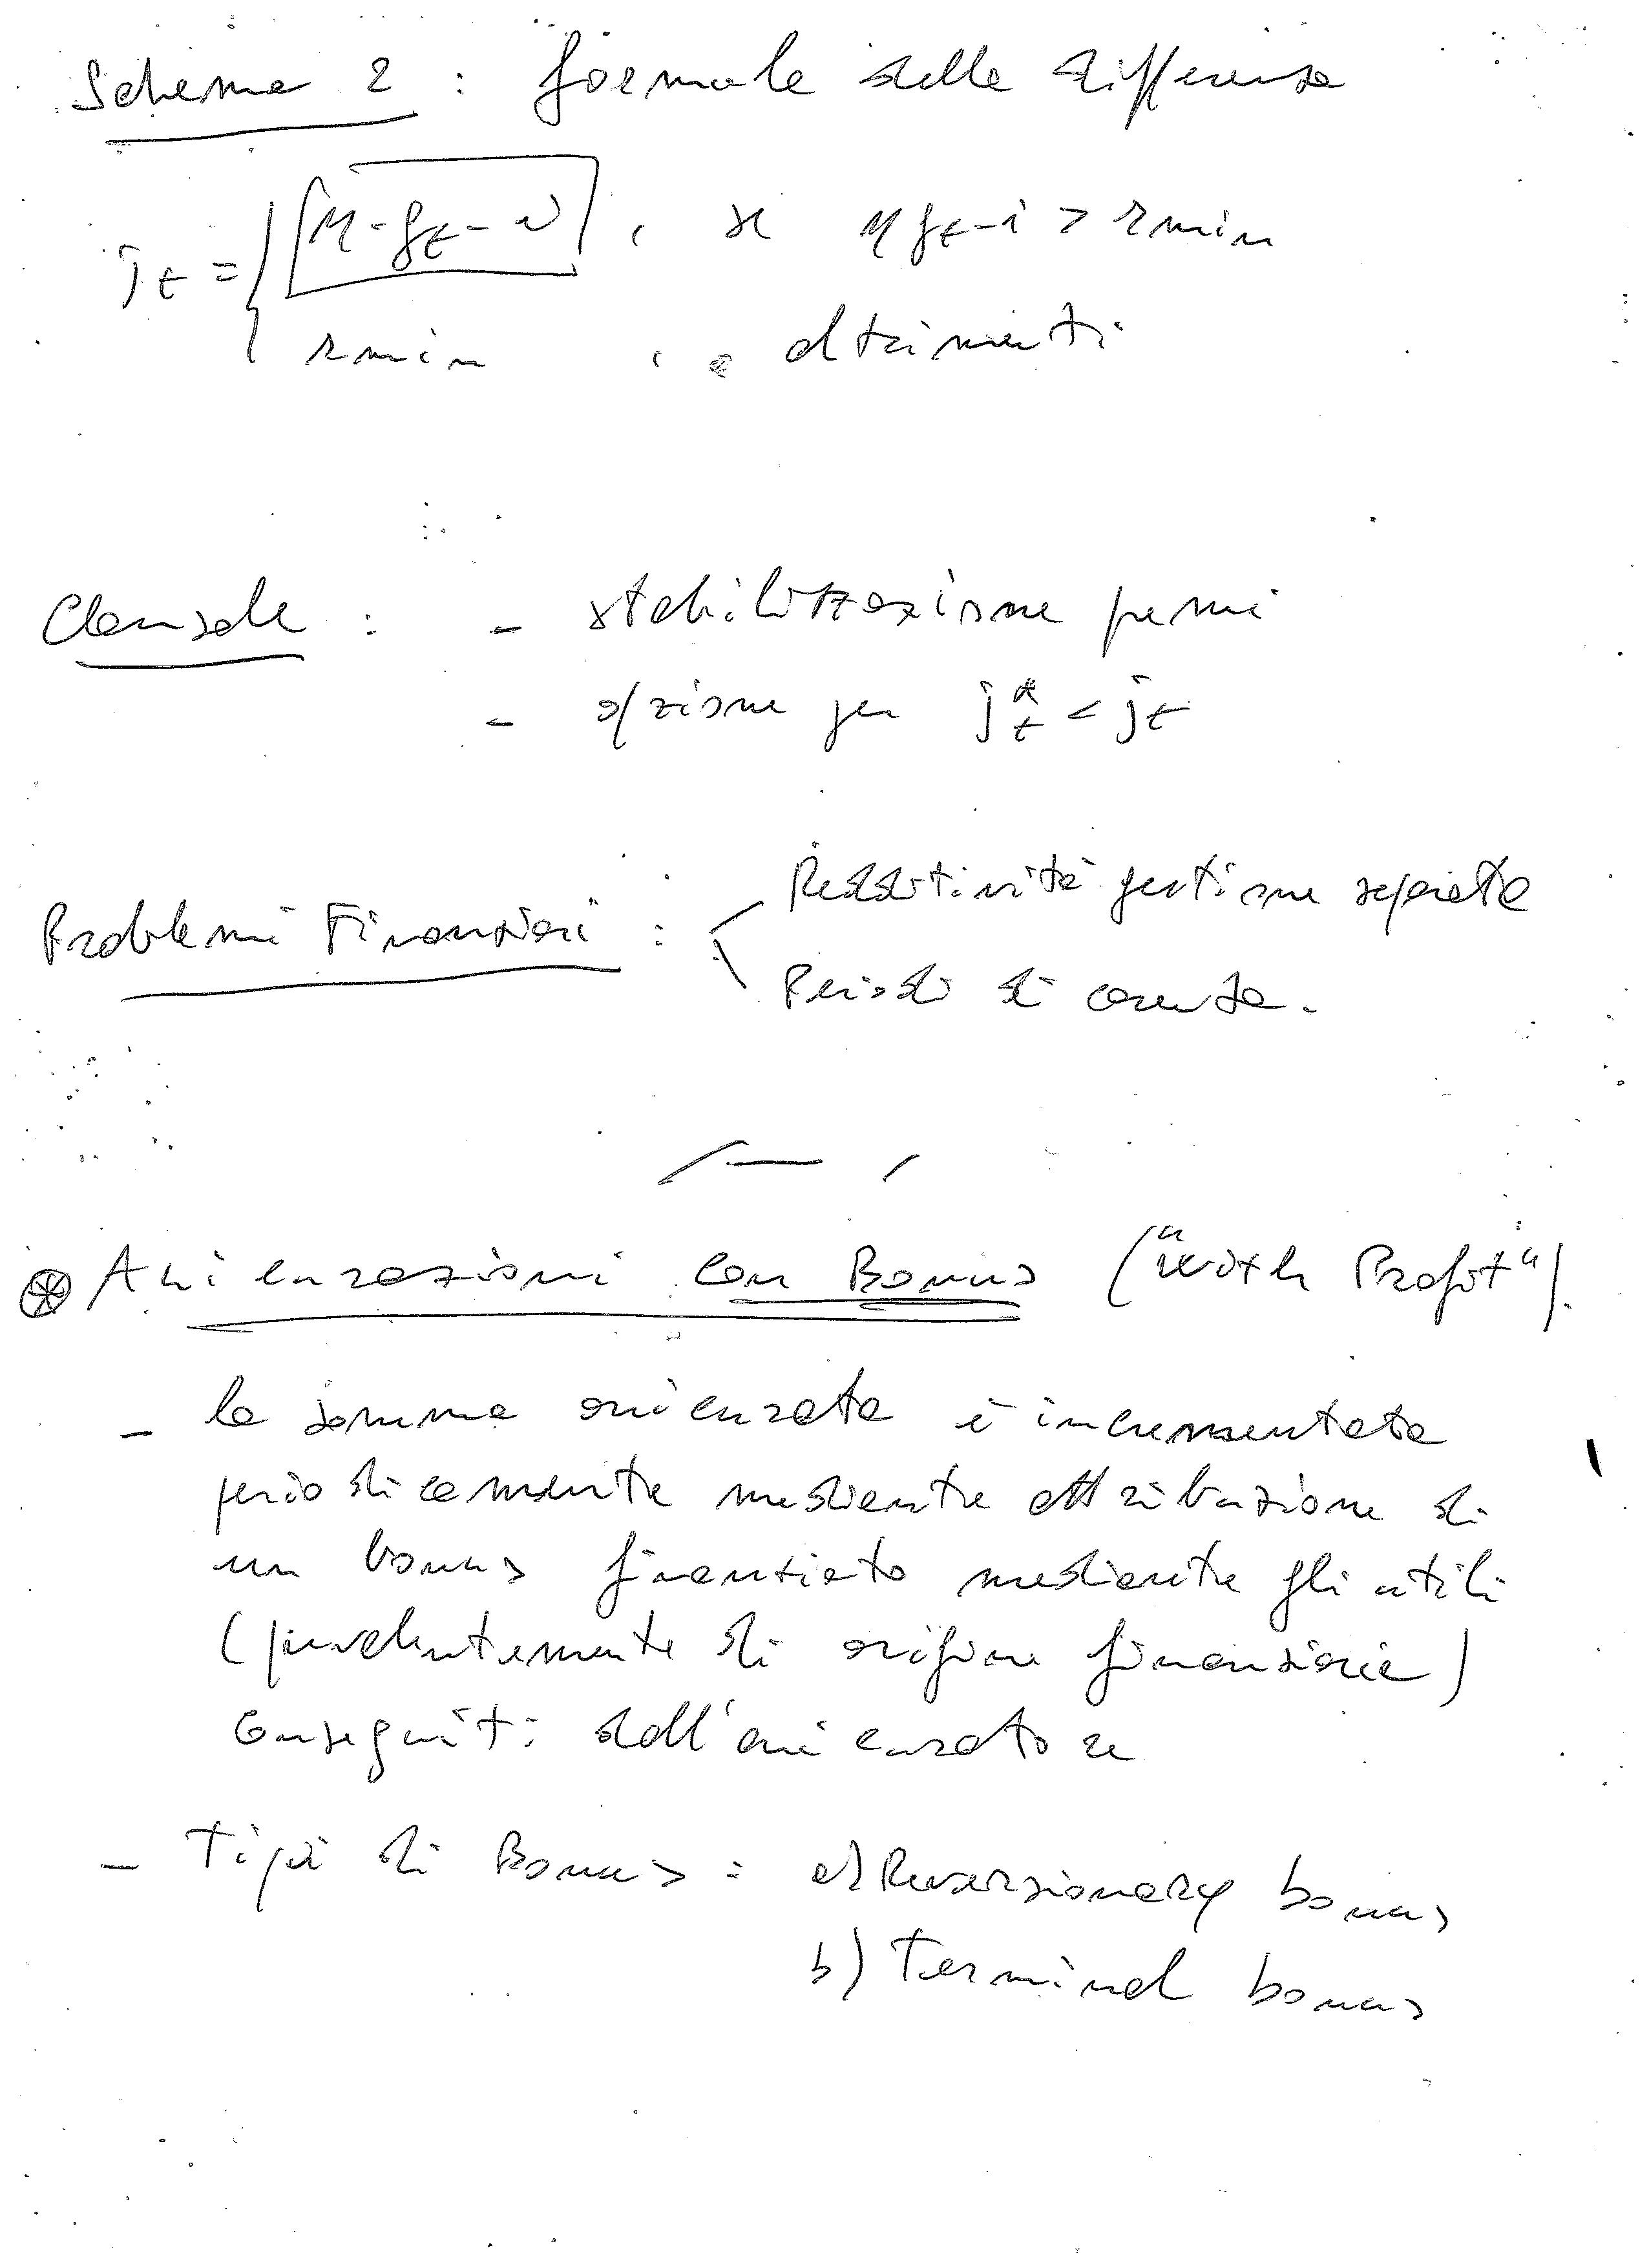 Schema 2 : formula della differenza
jt = { η·gt - i , se ηgt-i > rmin
rmin , altrimenti
Clausole : - stabilizzazione premi
- opzione per j*t < jt
Problemi Finanziari : Redditività gestione separata
Periodi di carenza.
Assicurazioni con Bonus ("With Profit").
- la somma assicurata è incrementata
periodicamente mediante attribuzione di
un bonus finanziato mediante gli utili
(prevalentemente di origine finanziaria)
conseguiti dall'assicuratore
- Tipi di Bonus : a) Reversionary bonus
b) Terminal bonus